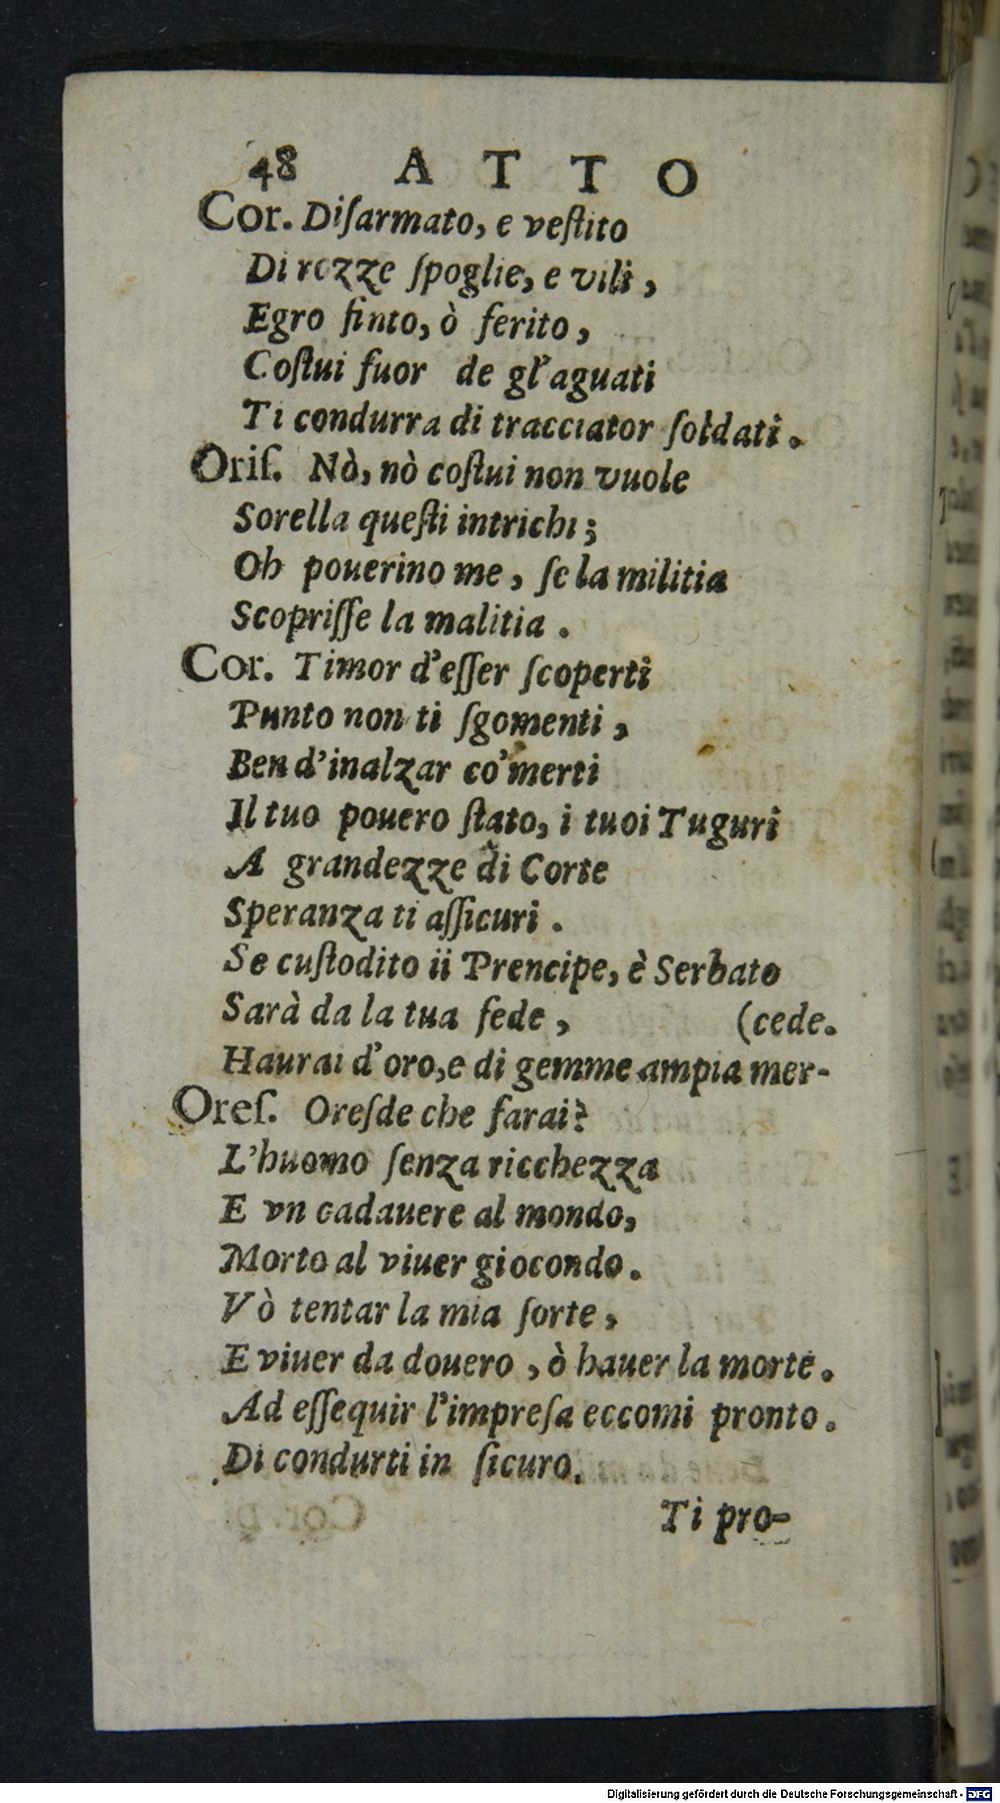 48 ATTO
Cor. Diſarmato, e veſtito
Di rozze ſpoglie, e vili,
Egro finto, ò ferito,
Coſtui fuor de gl'aguati
Ti condurra di tracciator ſoldati.
Oriſ. Nò, nò coſtui non vuole
Sorella queſti intrichi;
Oh pouerino me, ſe la militia
Scopriſſe la malitia.
Cor. Timor d'eſſer ſcoperti
Punto non ti ſgomenti,
Ben d'inalzar co'merti
Il tuo pouero ſtato, i tuoi Tuguri
A grandezze di Corte
Speranza ti aſſicuri.
Se cuſtodito ii Prencipe, è Serbato
Sarà da la tua fede, (cede.
Haurai d'oro, e di gemme ampia mer-
Oreſ. Oreſde che farai?
L'huomo ſenza ricchezza
E vn cadauere al mondo,
Morto al viuer giocondo.
Vò tentar la mia ſorte,
E viuer da douero, ò hauer la morte.
Ad eſſequir l'impreſa eccomi pronto.
Di condurti in ſicuro.
Ti pro-
Digitalisierung gefördert durch die Deutsche Forschungsgemeinschaft - DFG